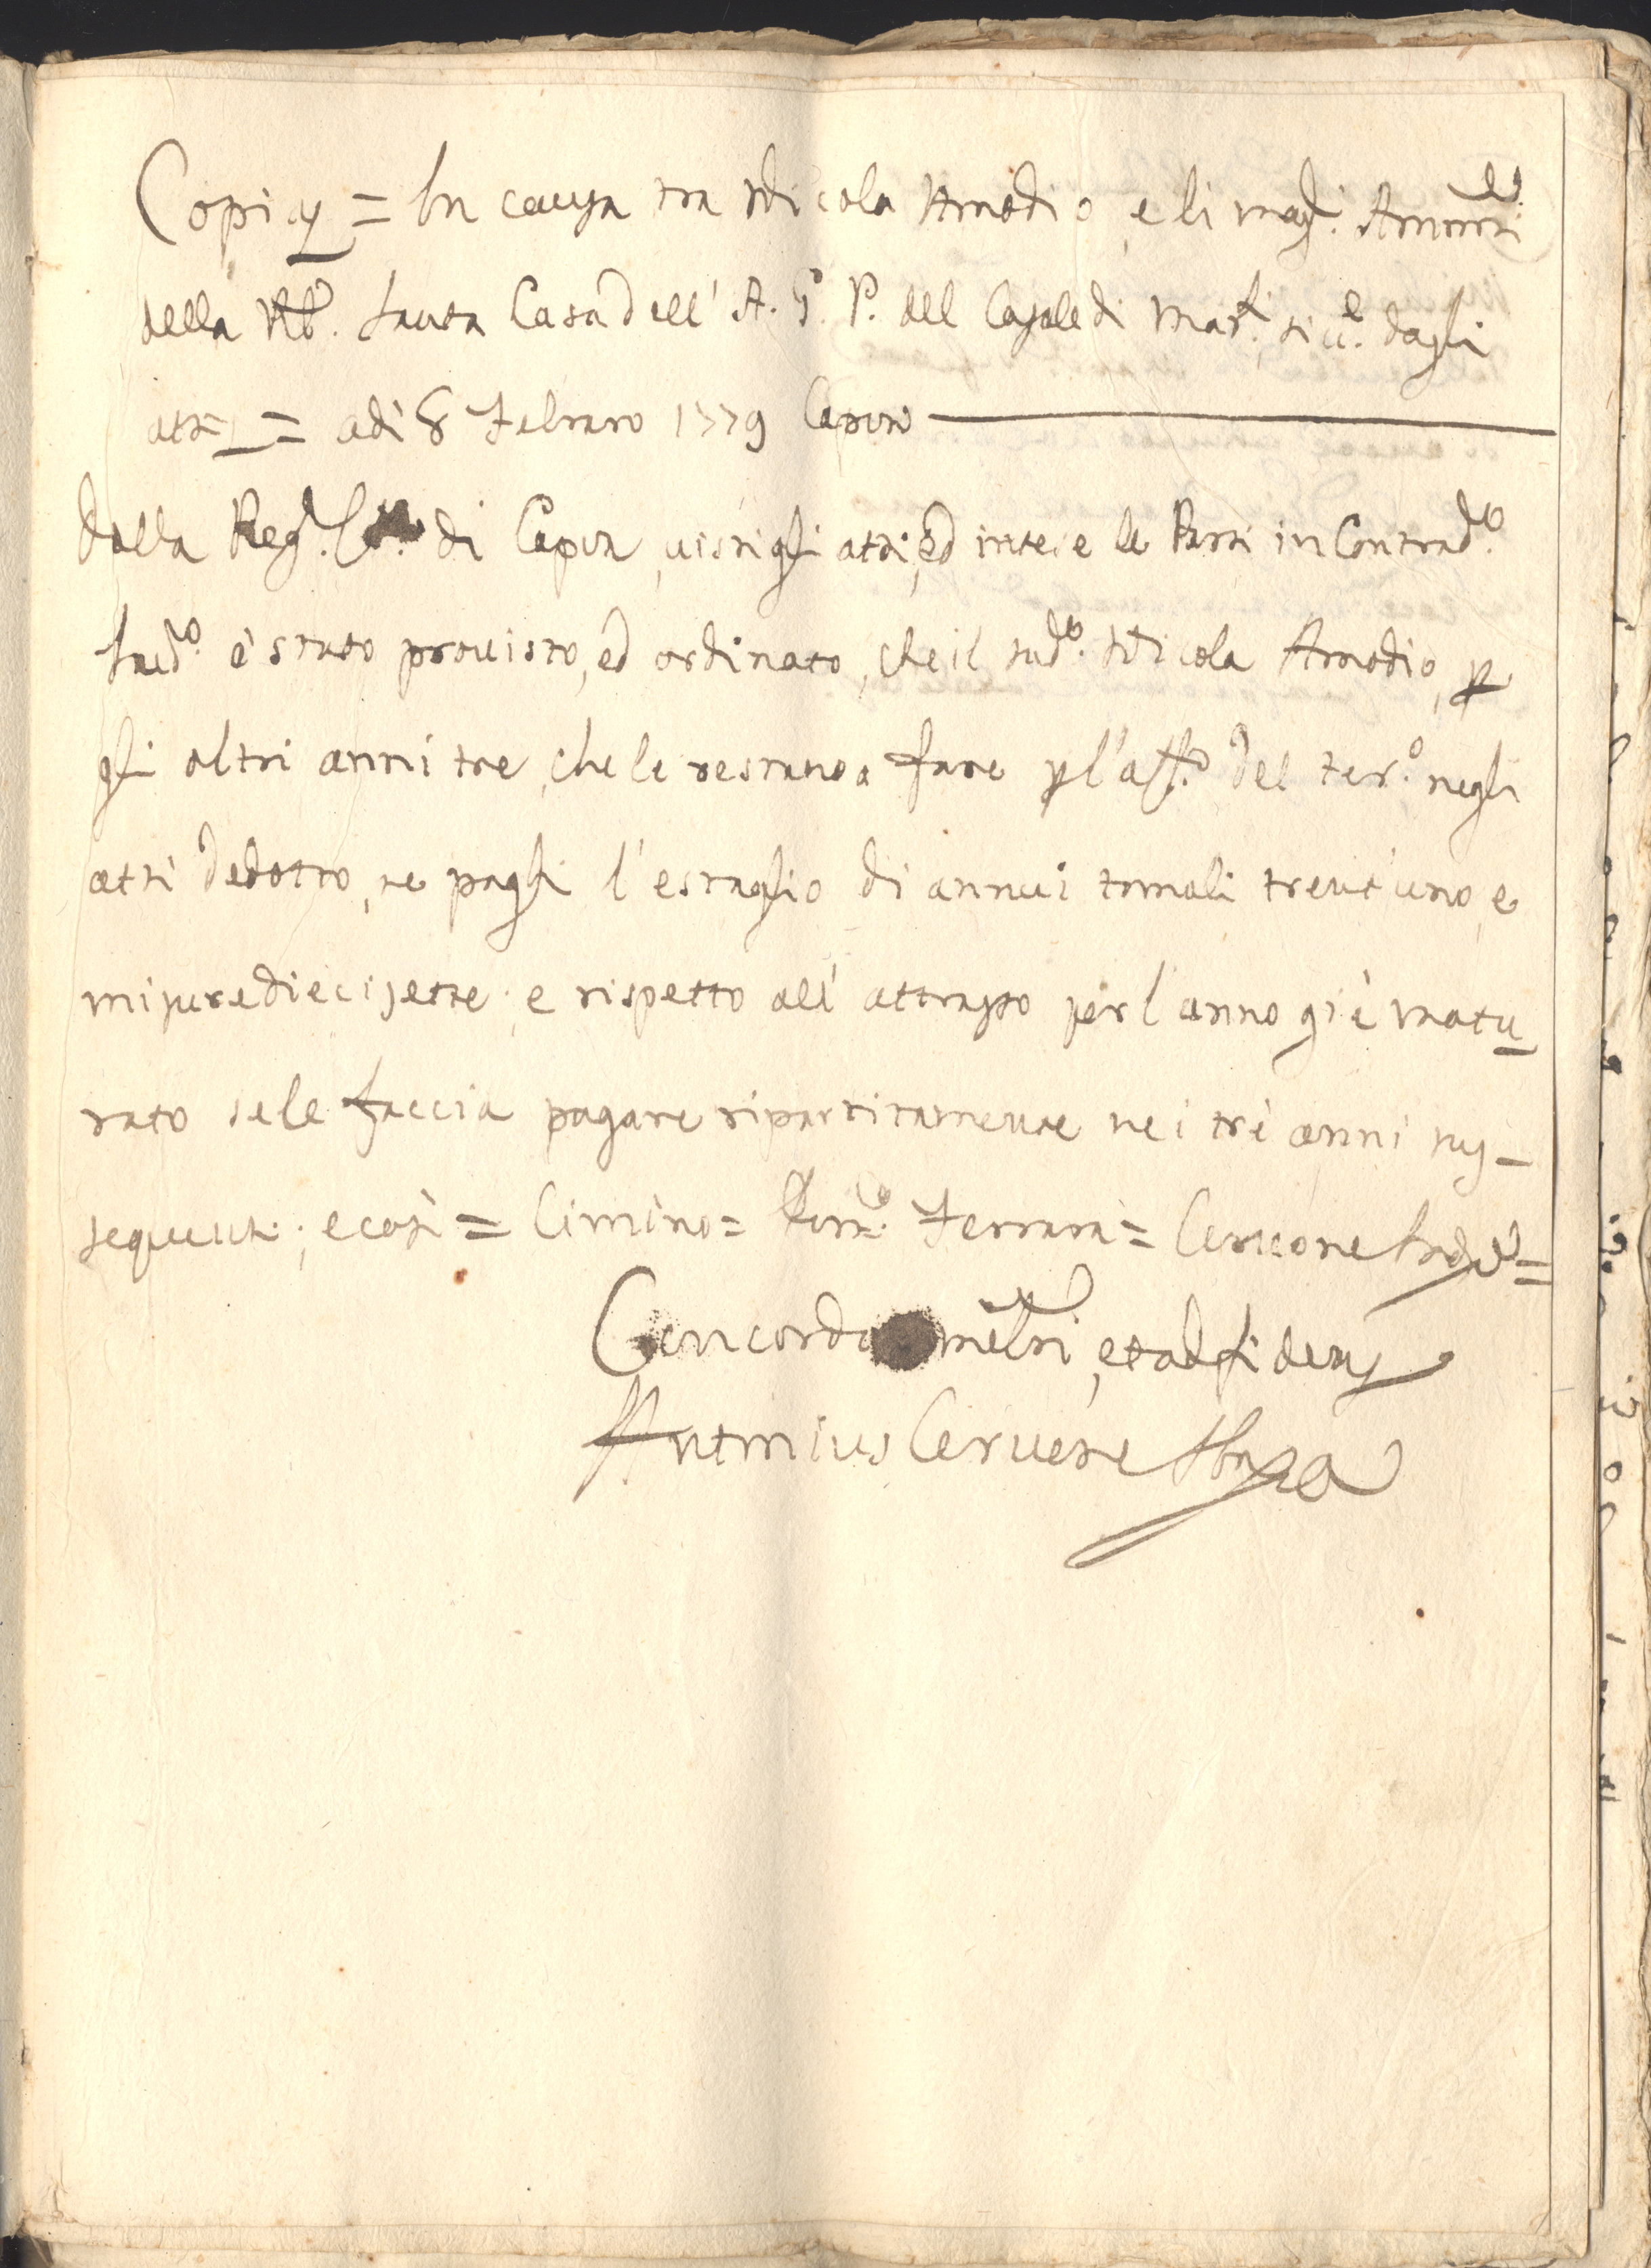 Copia = In causa tra Nicola Amodio, e li mag.ci Amm.ri
della Ven.le Santa Casa dell' A. G. P. del Casale di Mar.si, sicc.e dagli
atti = adì 8 Febraro 1779 Capua
Dalla Reg.a di Capua, visti gli atti, ed intese le Parti in Contrad.o
Iud.o è stato provisto, ed ordinato, che il sud.o Nicola Amodio, p
gli altri anni tre, che le restano a fare p l'aff.o del ter.o negli
atti dedotto, ne paghi l'estaglio di annui tomoli trent'uno, e
misure diecisette; e rispetto all' attrasso per l'anno già matu
rato se le faccia pagare ripartitamente nei trè anni sus-
sequenti; e così = Cimino = Ferrara = Cervone =
Concordat meliori, et ad fidem
Antonius Cervone